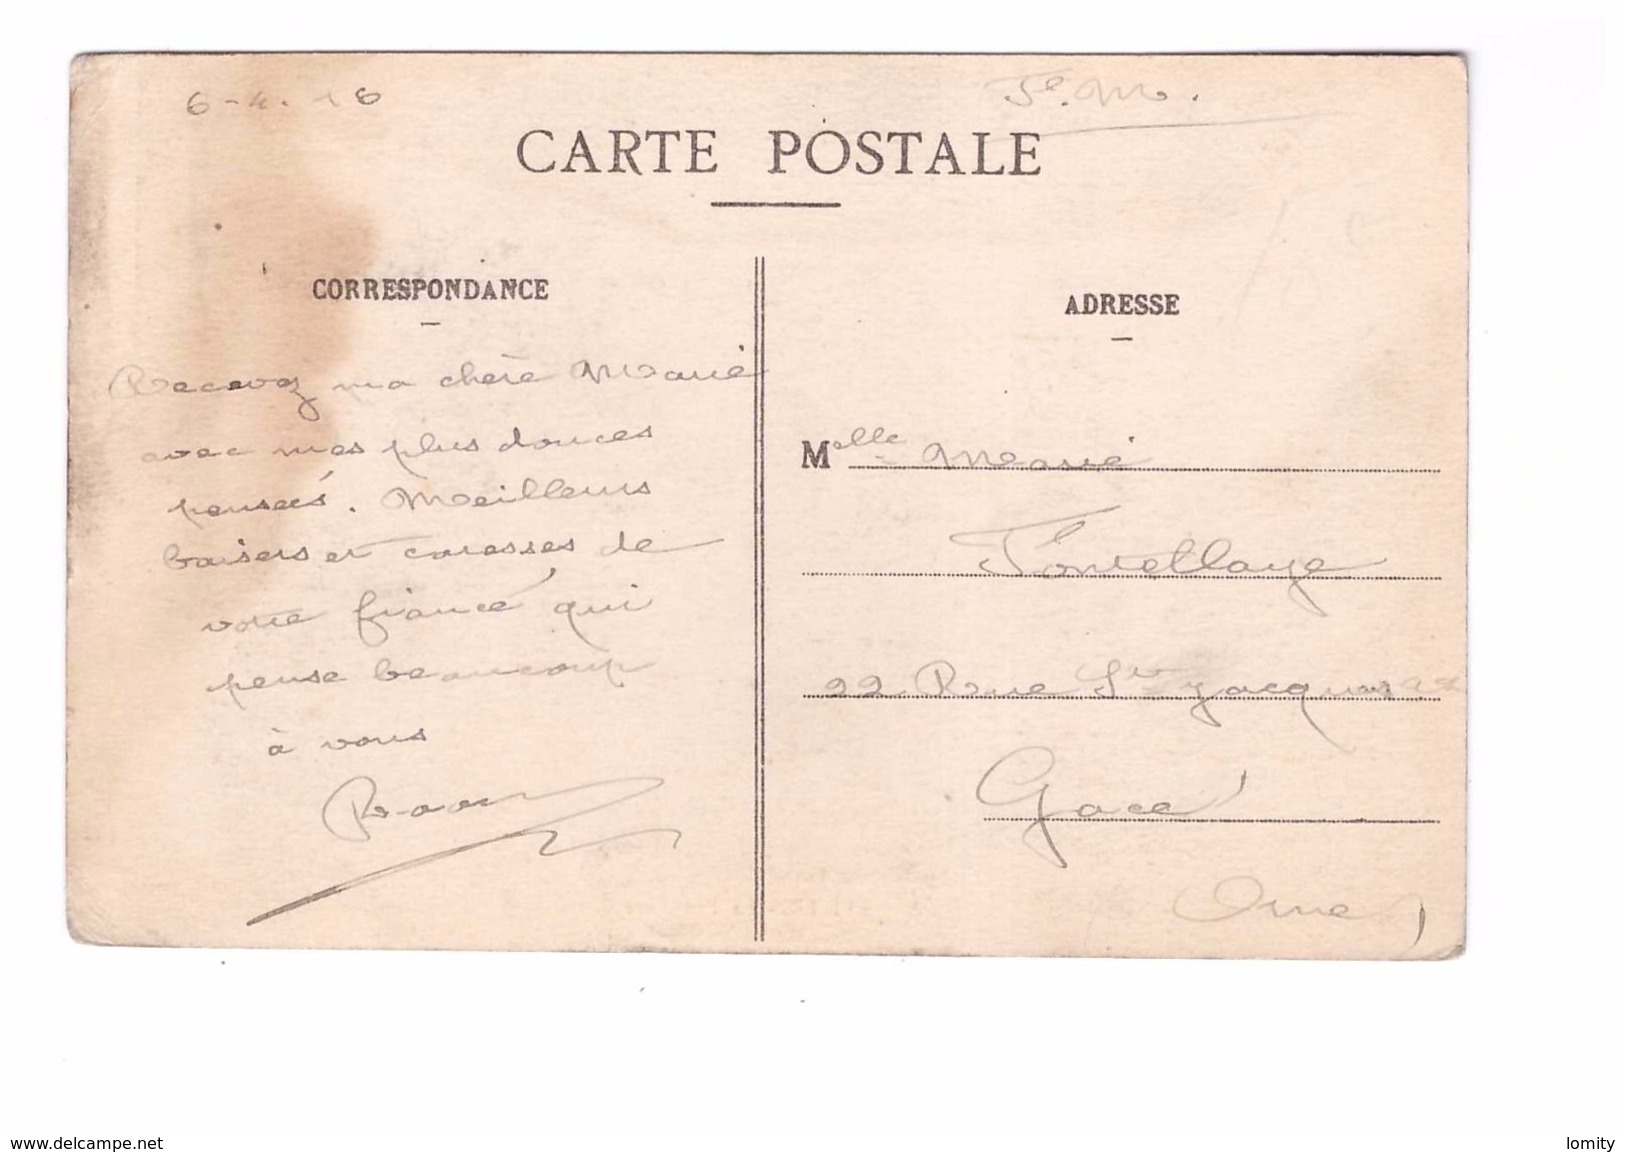 6-4.16
Fe. M.
CARTE POSTALE
CORRESPONDANCE
Recevez ma chère Marie
avec mes plus douces
pensées. Meilleurs
baisers et caresses de
votre fiancé qui
pense beaucoup
à vous
ADRESSE
Melle Marie
22 Rue St Jacques 22
Gacé
Orne
www.delcampe.net
lomity